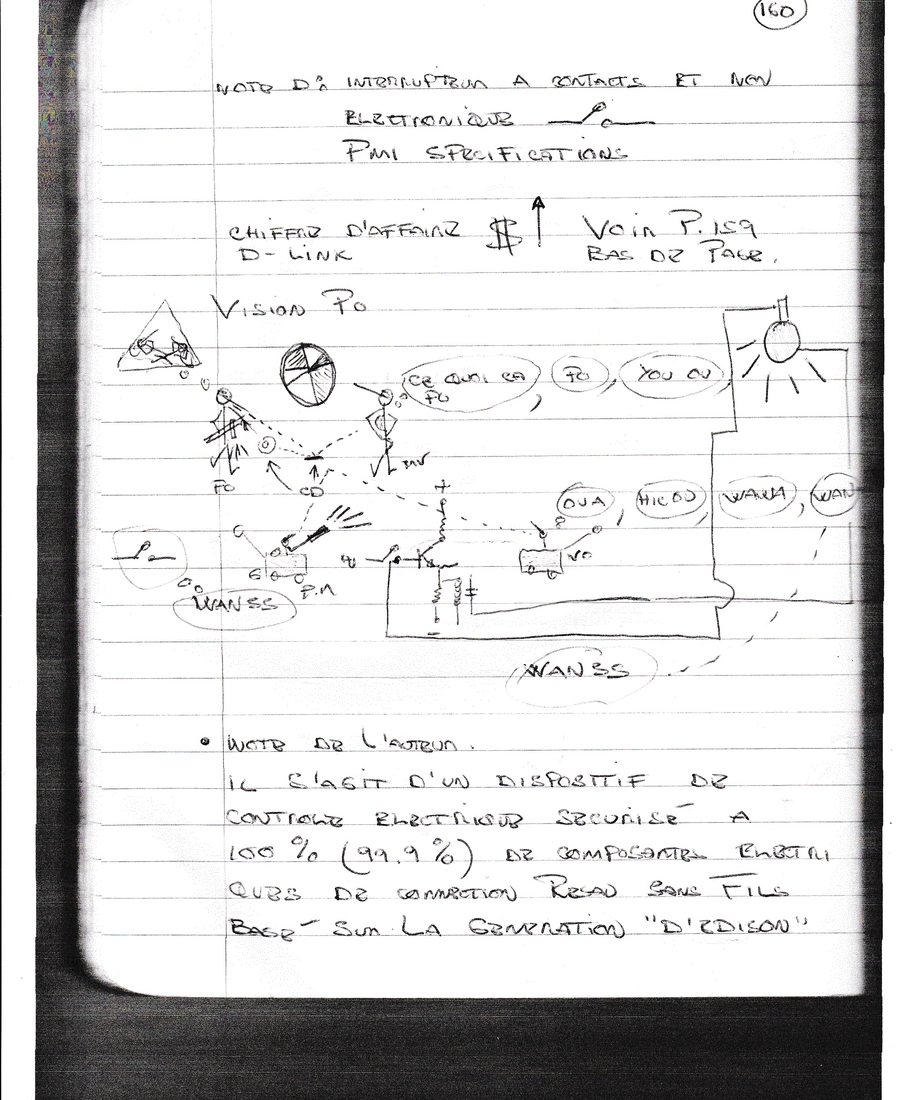 160
NOTE D: INTERRUPTEUR A CONTACTS ET NON
ELECTRONIQUE
PMI SPECIFICATIONS
CHIFFRE D'AFFAIRE $ VOIR P.159
D-LINK BAS DE PAGE.
VISION PO
CE QUOI CA PO, PO, YOU OU,
PO
CD
OUA, HIEOU, WAWA, WAN
+
VO
P.M
WANSS
-
WANSS
• NOTE DE L'AUTEUR.
IL S'AGIT D'UN DISPOSITIF DE
CONTROLE ELECTRIQUE SECURISÉ A
100 % (99.9 %) DE COMPOSANTES ELECTRI
QUES DE CONNECTION RESAU SANS FILS
BASÉ SUR LA GENERATION "D'EDISON"